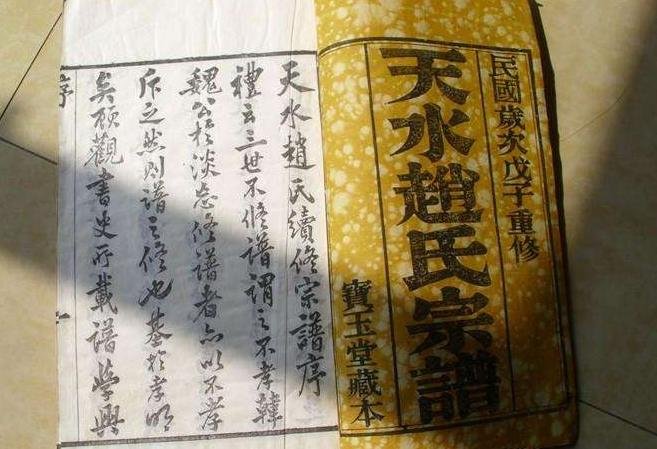 民國歲次戊子重修
天水趙氏宗譜
寶玉堂藏本
天水趙氏續修宗譜序
禮云三世不修譜謂之不孝韓
魏公於淡忘修譜者亦以不孝
斥之然則譜之修也基於孝明
矣頋觀書史所載譜學興
序
一